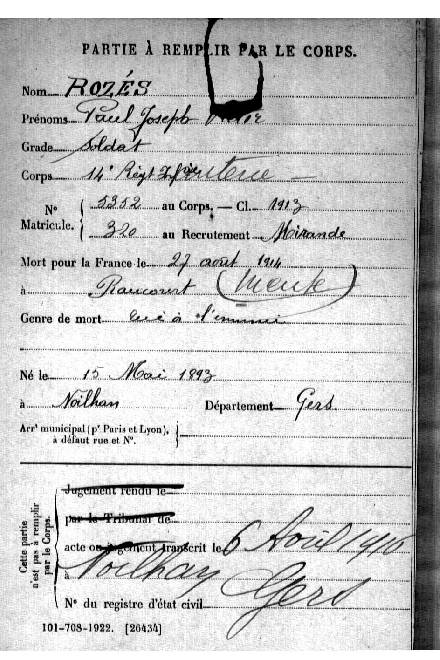 PARTIE À REMPLIR PAR LE CORPS.
Nom ROZÉS
Prénoms Paul Joseph
Grade Soldat
Corps 14e Régt Infanterie
N° Matricule. 5352 au Corps. — Cl. 1913
320 au Recrutement Mirande
Mort pour la France le 27 août 1914
à Raucourt (Meuse)
Genre de mort tué à l'ennemi
Né le 15 Mai 1893
à Noilhan Département Gers
Arrt municipal (pr Paris et Lyon), à défaut rue et N°.
Cette partie n'est pas à remplir par le Corps.
Jugement rendu le
par le Tribunal de
acte ou jugement transcrit le 6 Avril 1916
à Noilhan Gers
N° du registre d'état civil
101-708-1922. [26434]